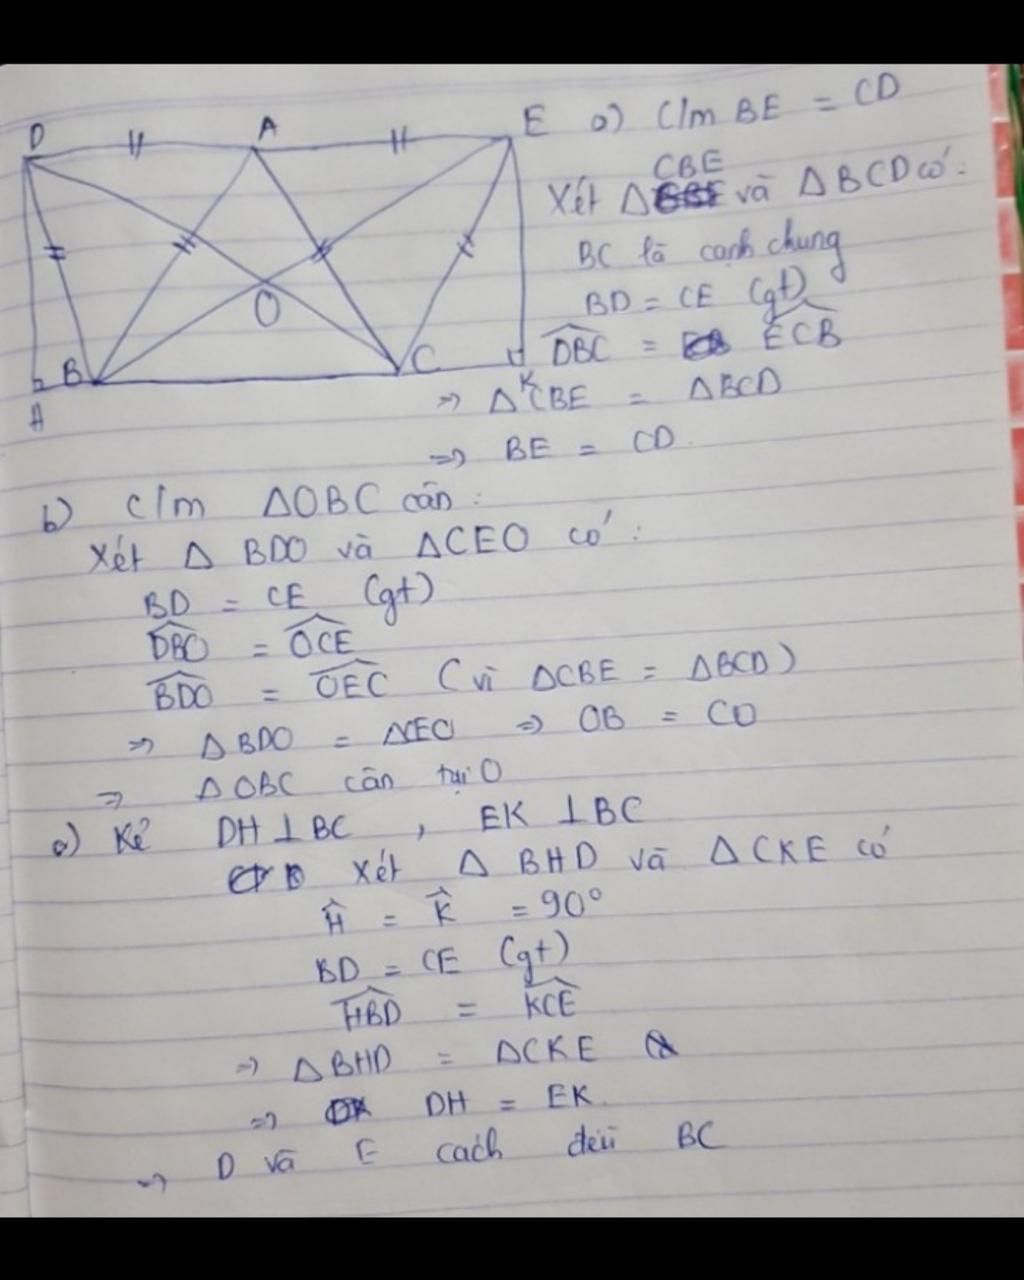 D A E a) C/m BE = CD
Xét Δ CBE và Δ BCD có:
BC là cạnh chung
BD = CE (gt)
O
DBC = ECB
B C K
H
=> Δ CBE = Δ BCD
=> BE = CD.
b) C/m ΔOBC cân :
Xét Δ BDO và ΔCEO có :
BD = CE (gt)
DBO = OCE
BDO = OEC (vì ΔCBE = ΔBCD)
=> Δ BDO = ΔCEO => OB = CO
=> ΔOBC cân tại O
c) Kẻ DH⊥BC , EK ⊥BC
Xét Δ BHD và Δ CKE có
Ĥ = K̂ = 90°
BD = CE (gt)
HBD = KCE
=> ΔBHD = ΔCKE
=> DH = EK.
=> D và E cách đều BC